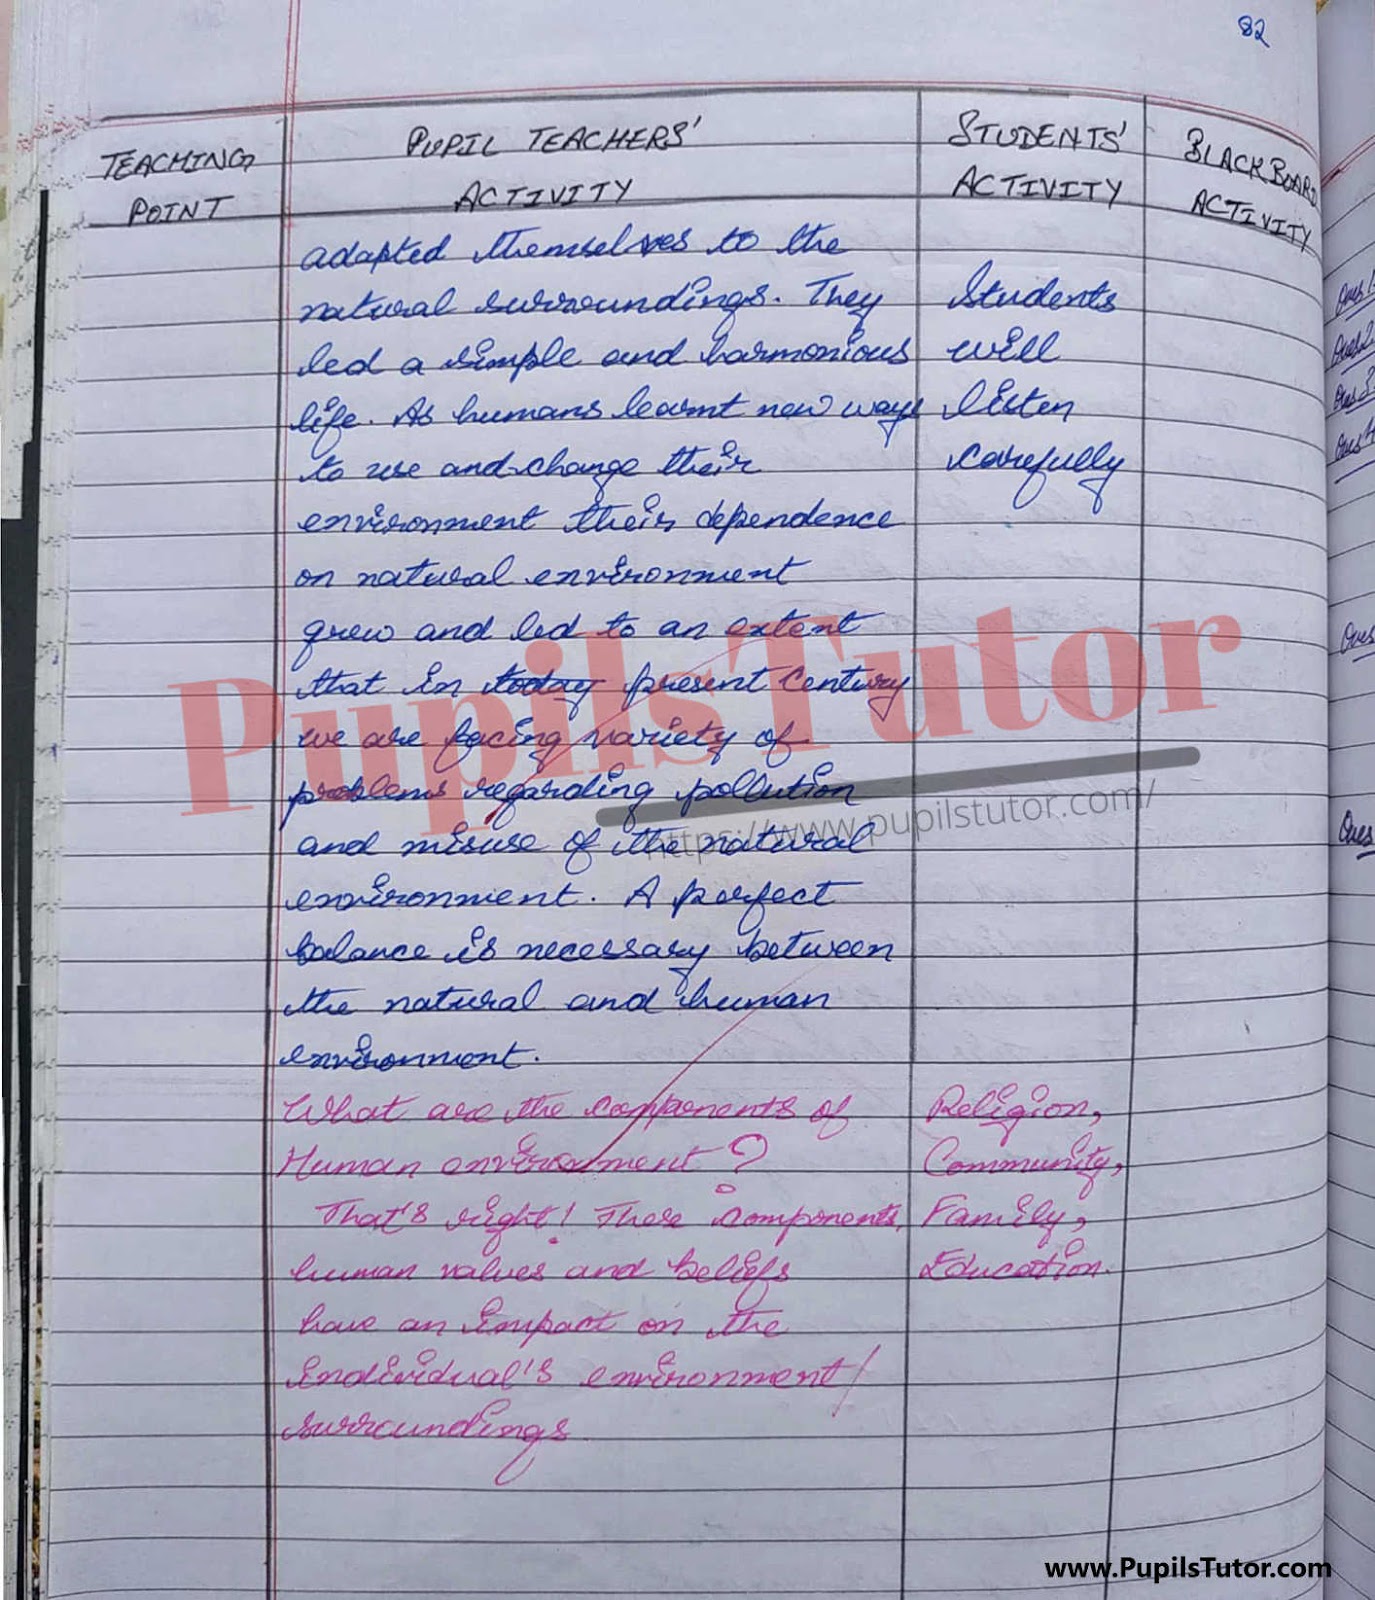 82
TEACHING
POINT
PUPIL TEACHERS'
ACTIVITY
STUDENTS'
ACTIVITY
BLACKBOARD
ACTIVITY
adapted themselves to the
natural surroundings. They
led a simple and harmonious
life. As humans learnt new ways
to use and change their
environment their dependence
on natural environment
grew and led to an extent
that in today present century
we are facing variety of
problems regarding pollution
and misuse of the natural
environment. A perfect
balance is necessary between
the natural and human
environment.
Students
will
listen
carefully
What are the components of
Human environment?
That's right! These components,
human values and beliefs
have an impact on the
individual's environment/
surroundings
Religion,
Community,
Family,
Education.
Ques 1.
Ques 2
Ques 3
Ques 4
Ques
Ques
PupilsTutor
https://www.pupilstutor.com/
www.PupilsTutor.com